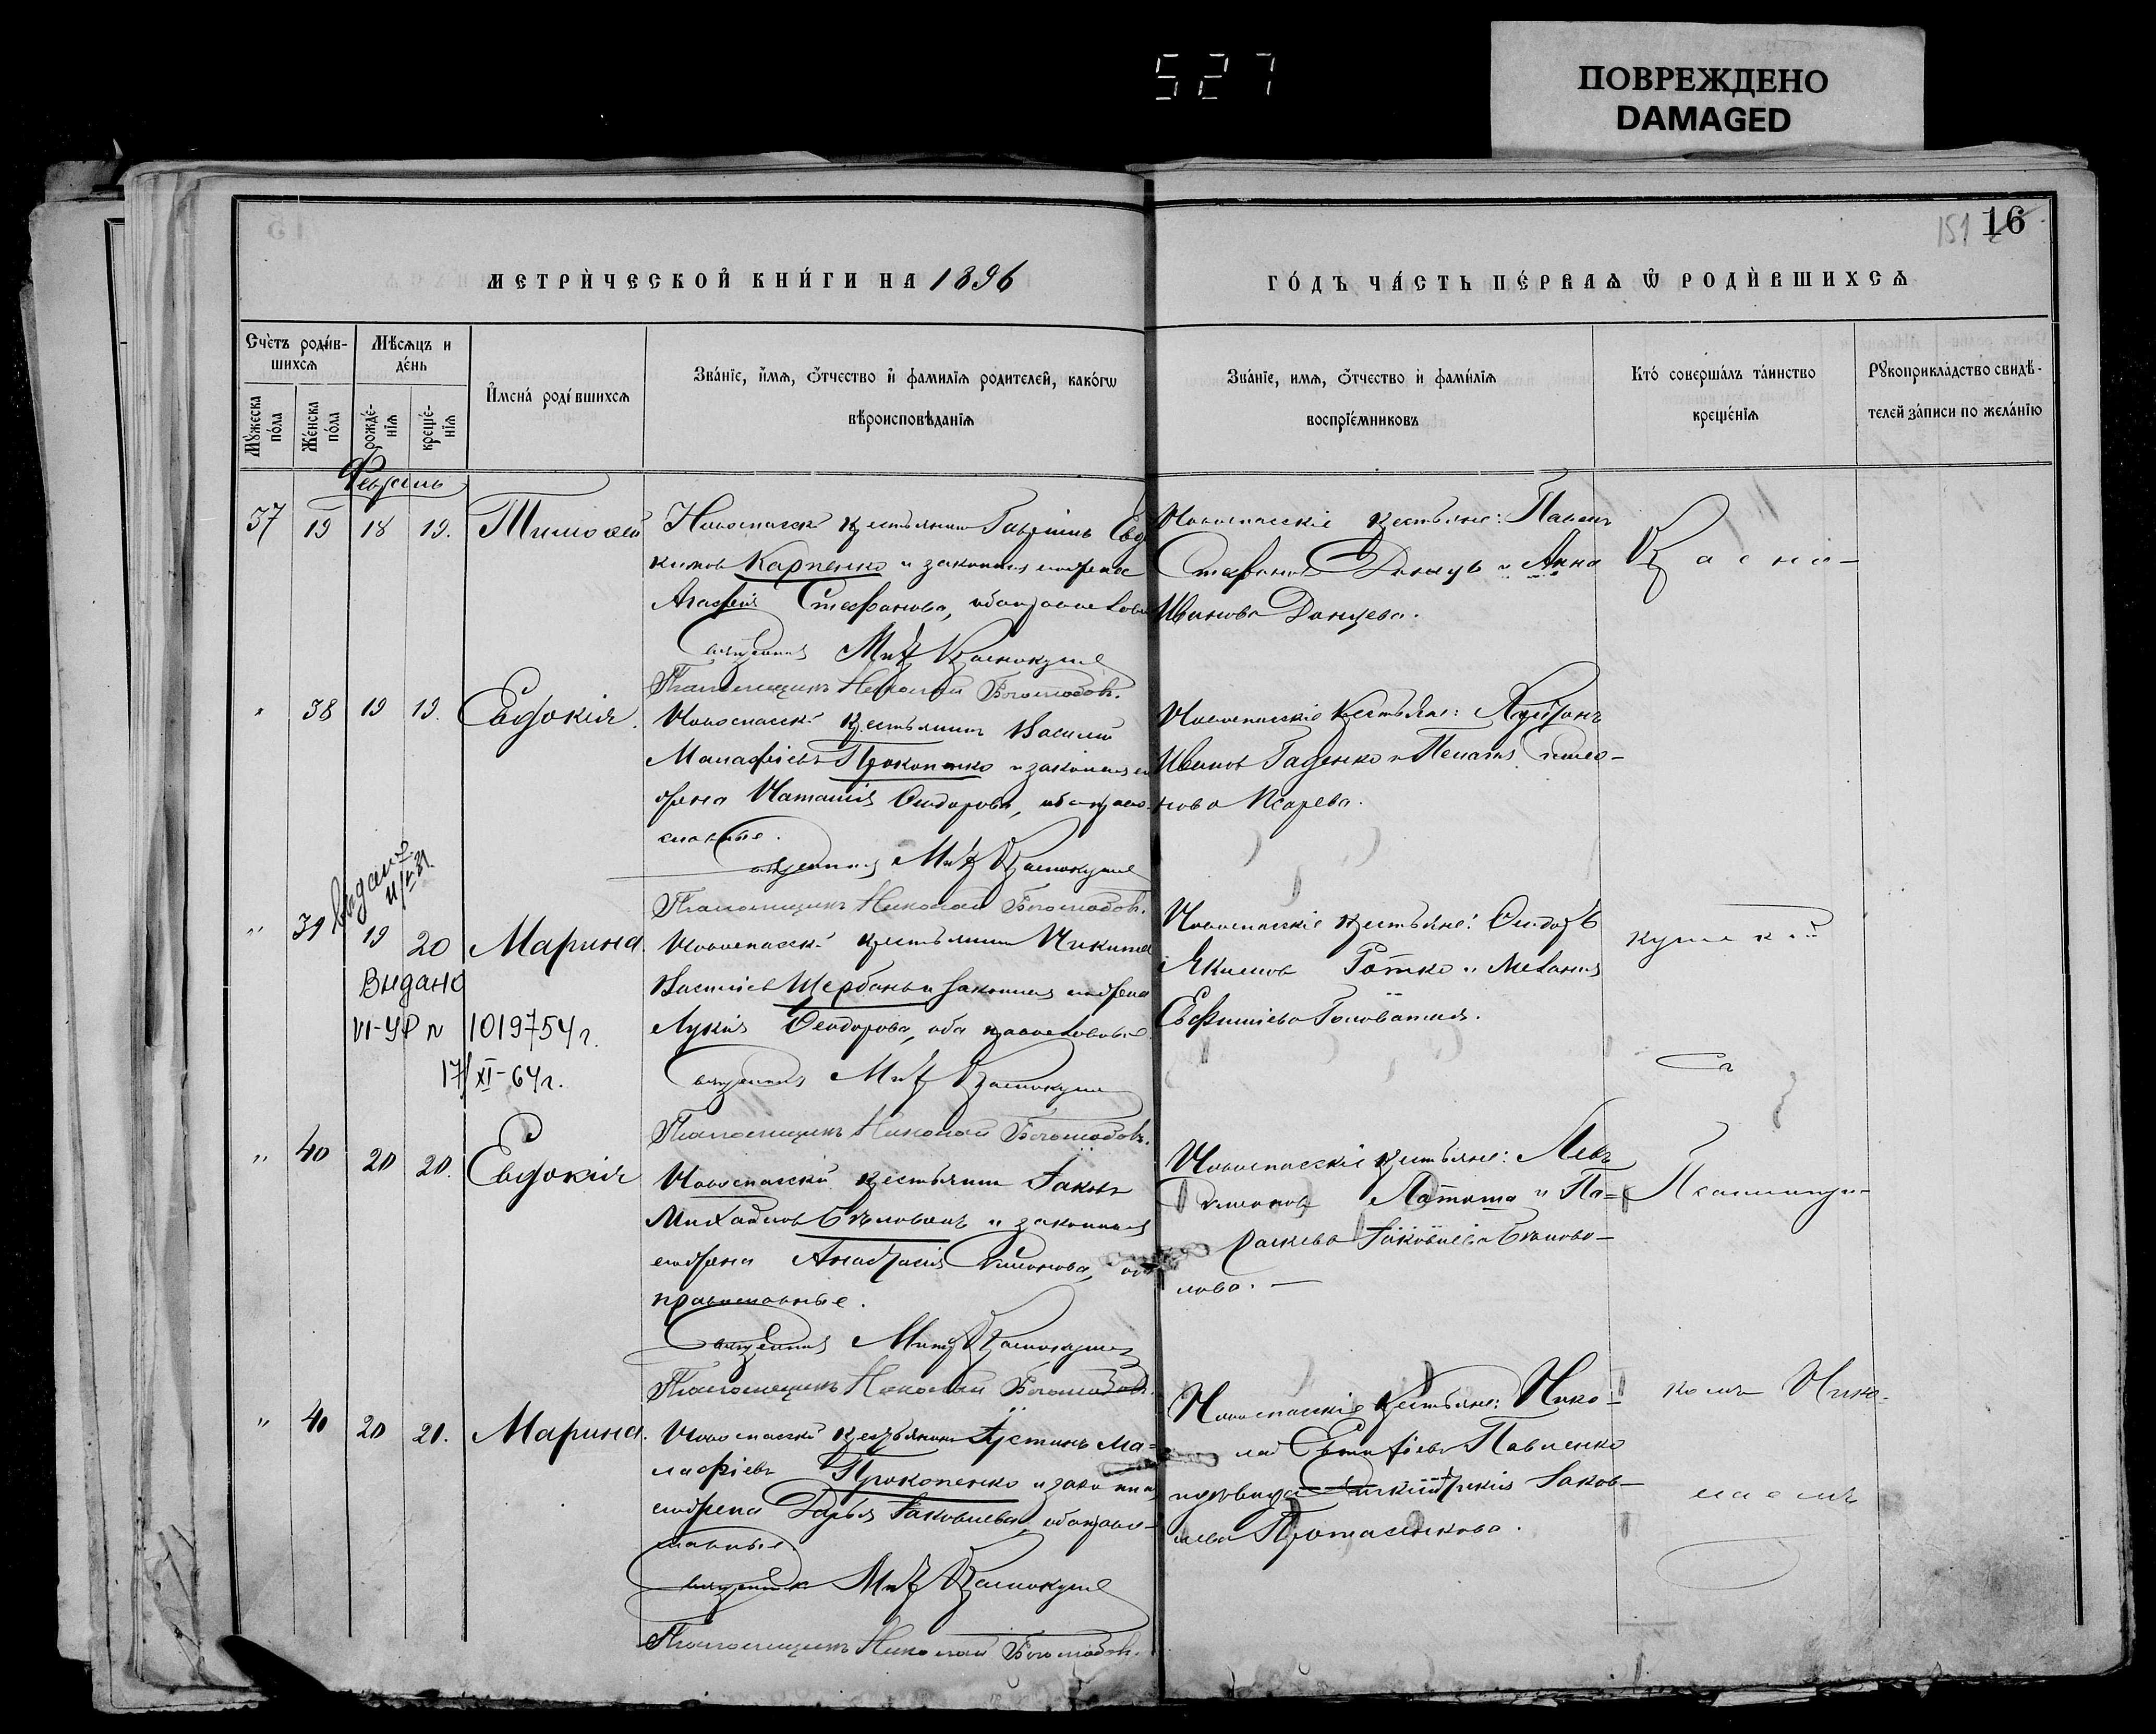 527
ПОВРЕЖДЕНО
DAMAGED
151 16
МЕТРИ́ЧЕСКОЙ КНИ́ГИ НА 1896
ГО́ДЪ ЧА́СТЬ ПЕ́РВАѦ Ѽ РОДИ́ВШИХСѦ
Сче́тъ роди́в-
шихсѧ
Мѣ́сѧцъ и
де́нь
Мꙋ́жеска
по́ла
Же́нска
по́ла
рожде́-
нїѧ
креще́-
нїѧ
И҆мена́ роди́вшихсѧ
Зва́нїе, и҆́мѧ, ѻ҆́тчество и҆ фами́лїѧ роди́телей, како́гѡ
вѣроисповѣ́данїѧ
Зва́нїе, имѧ, ѻ҆́тчество и҆ фами́лїѧ
воспрїе́мниковъ
Кто́ соверша́лъ та́инство
креще́нїѧ
Рꙋкоприкла́дство свидѣ́-
телей за́писи по жела́нїю
Февраль
37 19 18 19. Тимоѳей
Новоспасскій крестьянинъ Гавріилъ Евдо
кимовъ Карпенко и законная его жена
Агафія Стефанова, оба православные
Священникъ Мит Краснокутскій
Псаломщикъ Николай Боголюбовъ.
Новоспасскіе крестьяне: Павелъ
Стефановъ Донецъ и Анна
Иванова Донцева.
Красно-
" 38 19 19. Евдокія.
Новоспасскій крестьянинъ Василій
Малафіевъ Прокопенко и законная его
жена Наталія Ѳеодорова, оба право-
славные.
Священникъ Мит Краснокутскій
Псаломщикъ Николай Боголюбовъ.
Новоспасскіе крестьяне:
Ивановъ и Пелагія Симео-
нова Псарева.
Видано
" 39 19 20 Марина.
Видано
VI-УР № 1019754 г.
17/XI-64 г.
Новоспасскій крестьянинъ Никита
Васильевъ Щербань и законная его жена
Лукія Ѳеодорова, оба православные.
Священникъ Мит Краснокутскій
Псаломщикъ Николай Боголюбовъ.
Новоспасскіе крестьяне: Ѳеодоръ
Якимовъ и Меланія
Евфиміева Головатая.
кутскій
Съ
" 40 20 20. Евдокія
Новоспасскій крестьянинъ Іаковъ
Михайловъ Бѣловолъ и законная
его жена Анастасія Симонова, оба
православные.
Священникъ Митр Краснокутскій
Псаломщикъ Николай Боголюбовъ.
Новоспасскіе крестьяне: Левъ
Симоновъ и Па-
раскева Іаковлева Бѣлово-
лова. —
Псаломщи-
" 40 20 21. Марина.
Новоспасскій крестьянинъ Іустинъ Ма-
лафіевъ Прокопенко и законная
его жена Дарья Іаковлева, оба право-
славные.
Священникъ Мит Краснокутскій
Псаломщикъ Николай Боголюбовъ.
Новоспасскіе крестьяне: Нико-
лай Евтифіевъ Павленко
и девица Іаков-
лева Протасенкова.
комъ Нико-
лаемъ